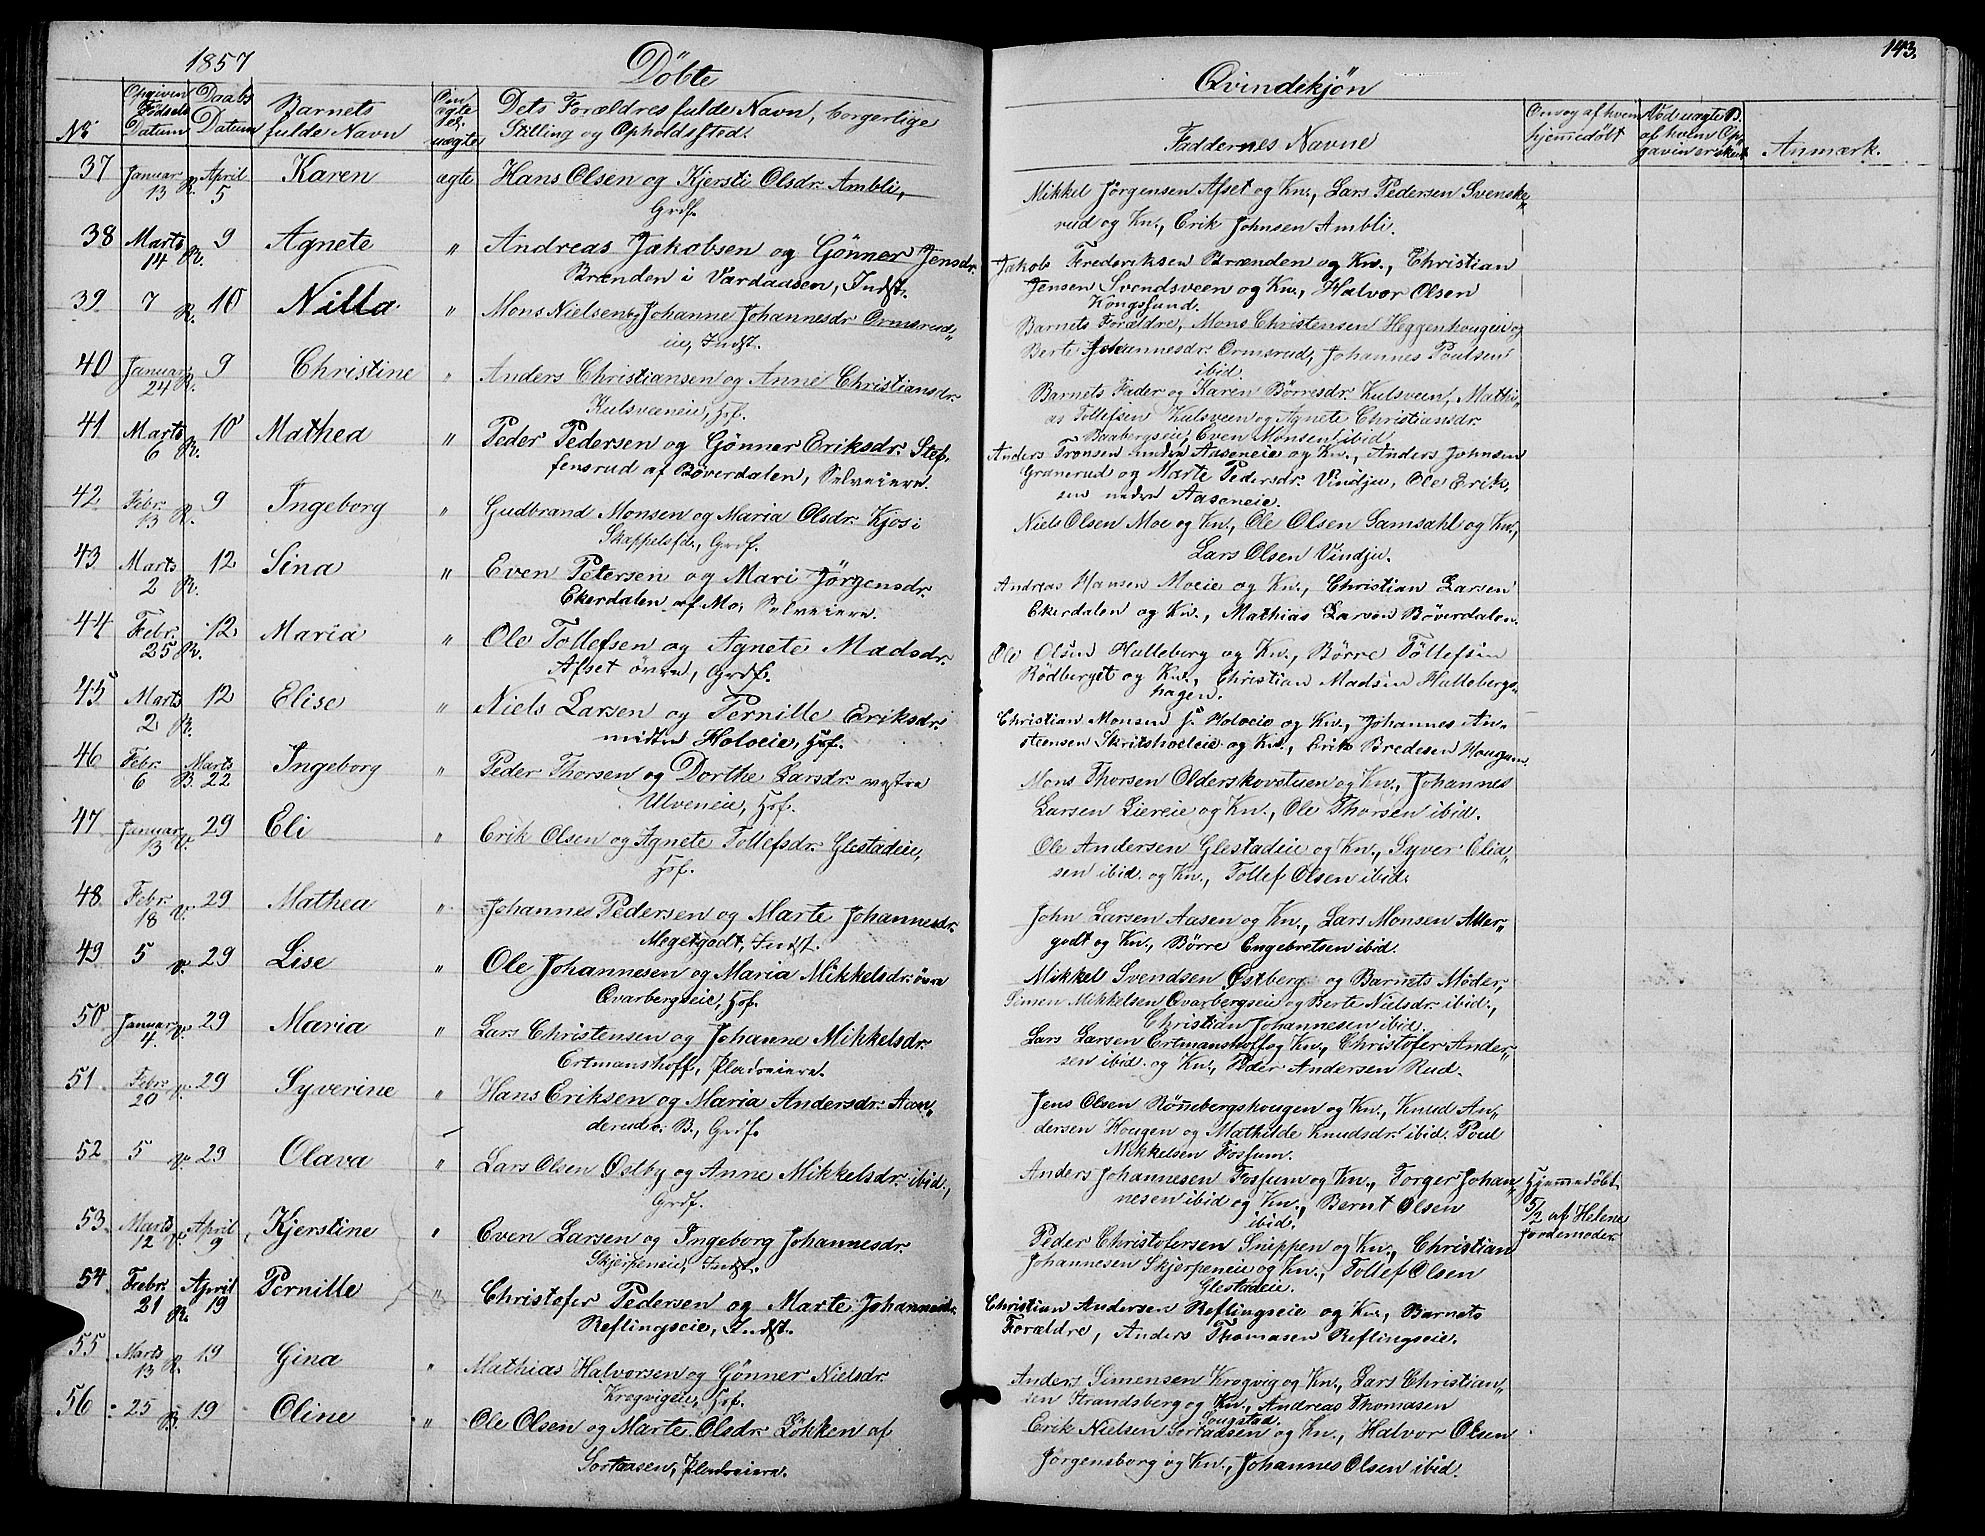 1857 Döbte
Qvindekjøn 143.
No. Opgiven Födsels Datum Daabs Datum Barnets fulde Navn Om ægte el. uægte Dets Forældres fulde Navn, borgerlige Stilling og Opholdssted.
Faddernes Navne Om og af hvem hjemmedöbt Ved uægte B. af hvem Opgaven er skeet Anmærk.
37 Januar 13 R. April 5 Karen ægte Hans Olsen og Kjersti Olsdr. Ambli,
Grdf.
Mikkel Jörgensen Afset og Kn., Lars Pedersen Svenske„
rud og Kn., Erik Johnsen Ambli.
38 Marts 14 R. 9 Agnete „ Andreas Jakobsen og Gönner Jensdr.
Brænden i Vardaasen, Indst.
Jakob Frederiksen Brænden og Kn., Christian
Jensen Svendsveen og Kn., Halvor Olsen
Kongslund.
39 7 R. 10 Nilla „ Mons Nielsen og Johanne Johannesdr Ormsrud„
eie, Indst.
Barnets Forældre, Mons Christensen Heggenhougen og
Berte Johannesdr. Ormsrud, Johannes Poulsen
ibid.
40 Januar 24 R. 9 Christine „ Anders Christiansen og Anne Christiansdr.
Kulsveeneie, Hsf.
Barnets Fader og Karen Börresdr. Kulsveen, Mathi„
as Tollefsen Kulsveen og Agnete Christiansdr.
Baabergseie, Even Monsen ibid.
41 Marts 6 R. 10 Mathea „ Peder Pedersen og Gönner Eriksdr. Stef„
fensrud af Böverdalen, Selveiere.
Anders Tronsen nedre Aaseneie og Kn., Anders Johnsen
Granerud og Marte Pedersdr. Vindju, Ole Erik„
sen nedre Aaseneie.
42 Febr. 13 R. 9 Ingeborg „ Gudbrand Monsen og Maria Olsdr. Kjos i
Skappelsfd., Grdf.
Niels Olsen Moe og Kn., Ole Olsen Samsahl og Kn.,
Lars Olsen Vindju.
43 Marts 2 R. 12 Sina „ Even Petersen og Mari Jörgensdr.
Ekerdalen af Mo, Selveiere.
Andreas Hansen Moeie og Kn., Christian Larsen
Ekerdalen og Kn., Mathias Larsen Böverdalen.
44 Febr. 25 R. 12 Maria „ Ole Tollefsen og Agnete Madsdr.
Afset övre, Grdf.
Ole Olsen Hulleberg og Kn., Börre Tollefsen
Rödberget og Kn., Christian Madsen Hullebergs„
hagen.
45 Marts 2 R. 12 Elise „ Niels Larsen og Pernille Eriksdr.
midtre Holoeie, Hsf.
Christian Monsen s. Holoeie og Kn., Johannes An„
steensen Skritshoeleie og Kn., Erik Bredesen Hougen.
46 Febr. 6 B. Marts 22 Ingeborg „ Peder Thorsen og Dorthe Larsdr. vestre
Ulveneie, Hsf.
Mons Thorsen Olderskovstuen og Kn., Johannes
Larsen Liereie og Kn., Ole Thorsen ibid.
47 Januar 13 V. 29 Eli „ Erik Olsen og Agnete Tollefsdr. Glestadeie,
Hsf.
Ole Andersen Glestadeie og Kn., Syver Elia„
sen ibid. og Kn., Tollef Olsen ibid.
48 Febr. 18 V. 29 Mathea „ Johannes Pedersen og Marte Johannesdr.
Megetgodt, Indst.
John Larsen Aasen og Kn., Lars Monsen Aller„
godt og Kn., Börre Engebretsen ibid.
49 5 V. 29 Lise „ Ole Johannesen og Maria Mikkelsdr. övre
Qvarbergseie, Hsf.
Mikkel Svendsen Østberg og Barnets Moder,
Simen Mikkelsen Qvarbergseie og Berte Nielsdr. ibid.,
Christian Johannesen ibid.
50 Januar 4 V. 29 Maria „ Lars Christensen og Johanne Mikkelsdr.
Ertmanshoff, Pladseiere.
Lars Larsen Ertmanshoff og Kn., Christofer Ander„
sen ibid. og Kn., Peder Andersen Rud.
51 Febr. 20 V. 29 Syverine „ Hans Eriksen og Maria Andersdr. Aan„
derud c. B., Grdf.
Jens Olsen Rönnebergshougen og Kn., Knud An„
dersen Hougen og Mathilde Knudsdr. ibid. Poul
Mikkelsen Fosfum.
52 5 V. 29 Olava „ Lars Olsen Østby og Anne Mikkelsdr. ibid.,
Grdf.
Anders Johannesen Fosfum og Kn., Torger Johan„
nesen ibid og Kn., Bernt Olsen
ibid.
Hjemmedöbt
5/2 af Helene
Jordemoder.
53 Marts 12 V. April 9 Kjerstine „ Even Larsen og Ingeborg Johannesdr.
Skjerpeneie, Indst.
Peder Christofersen Snippen og Kn., Christian
Johannesen Skjerpeneie og Kn., Tollef Olsen
Glestadeie.
54 Febr. 21 R. April 19 Pernille „ Christofer Pedersen og Marte Johannesdr.
Reflingseie, Indst.
Christian Andersen Reflingseie og Kn., Barnets
Forældre, Anders Thomasen Reflingseie.
55 Marts 13 R. 19 Gina „ Mathias Halvorsen og Gönner Nielsdr.
Krogvigeie, Hsf.
Anders Simensen Krogvig og Kn., Lars Christian„
sen Strandsberg og Kn., Andreas Thomasen
Sougstad.
56 25 B. 19 Oline „ Ole Olsen og Marte Olsdr. Løkken af
Sortaasen, Pladseiere.
Erik Nielsen Sortaasen og Kn., Halvor Olsen
Jörgensborg og Kn., Johannes Olsen ibid.